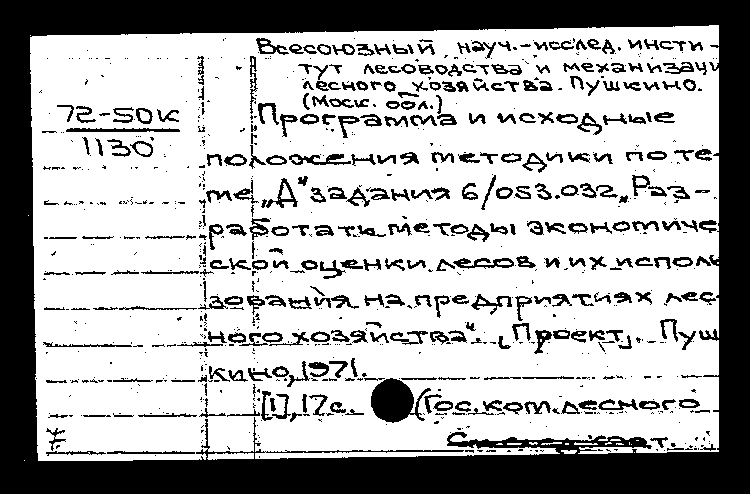 Всесоюзный науч.-исслед. инсти-
тут лесоводства и механизаци
лесного хозяйства. Пушкино.
(Моск. обл.)
72-50к
1130
Программа и исходные
положения методики по те-
ме „Д“ задания 6/053.032 „Раз-
работать методы экономиче
ской оценки лесов и их исполь
зования на предприятиях лес-
ного хозяйства“. [Проект]. Пуш
кино, 1971.
[1], 17с. (Гос. ком. лесного
След. карт.